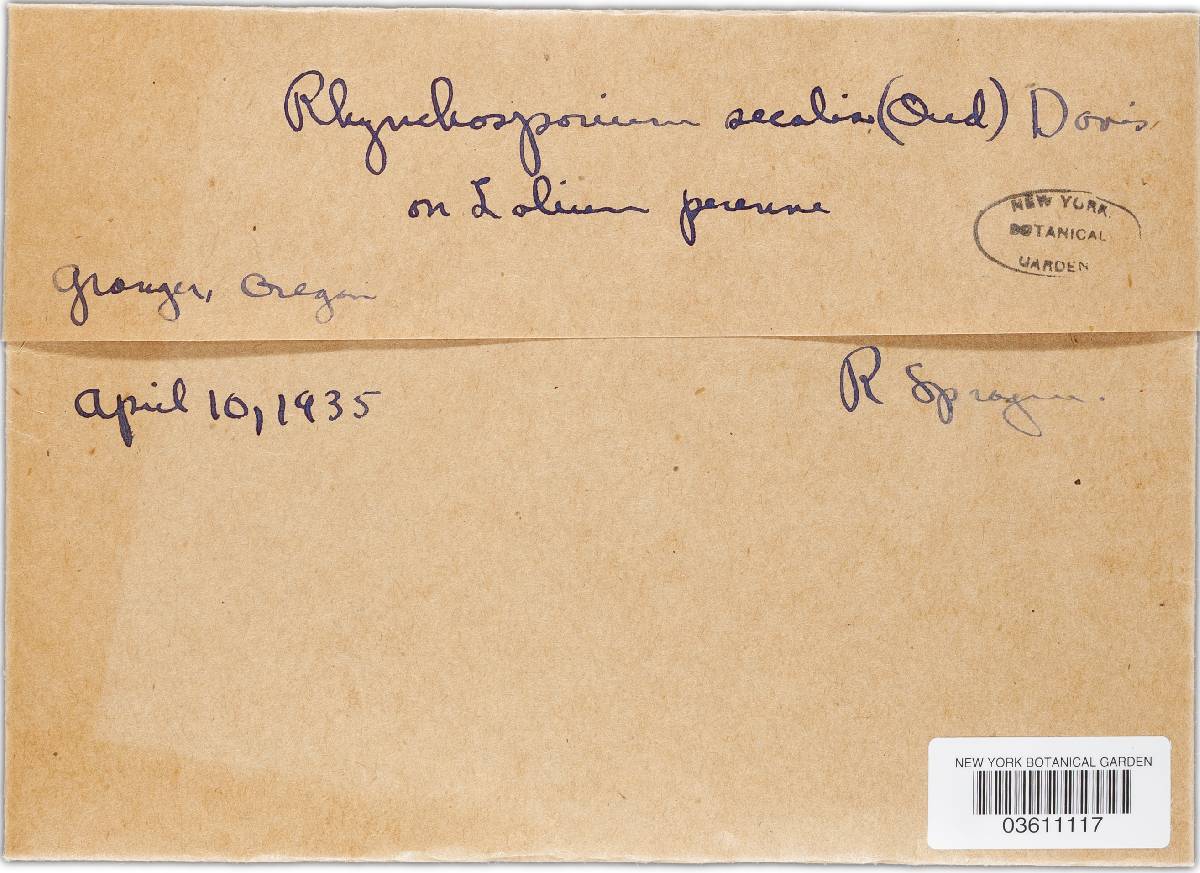 Rhynchosporium secalis (Oud) Davis
on Lolium perenne
NEW YORK
BOTANICAL
GARDEN
Granger, Oregon
April 10, 1935
R Sprague.
NEW YORK BOTANICAL GARDEN
03611117